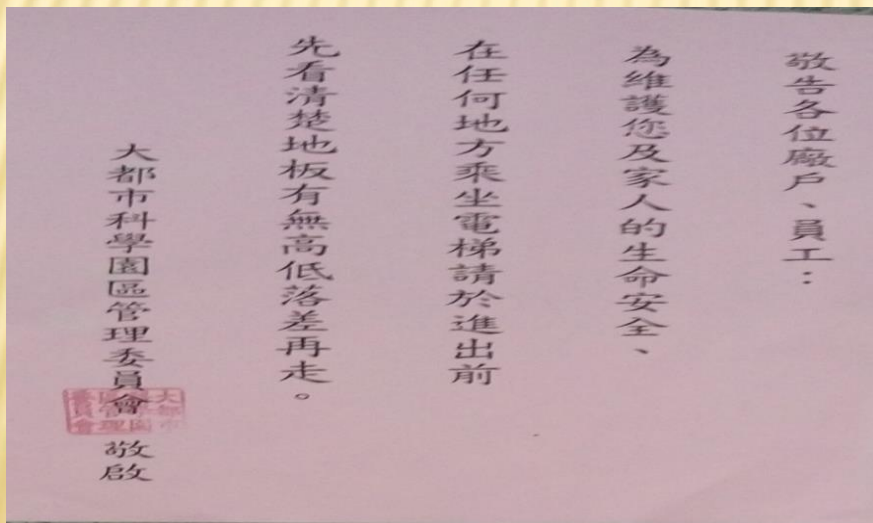 敬告各位廠戶、員工：
為維護您及家人的生命安全、
在任何地方乘坐電梯請於進出前
先看清楚地板有無高低落差再走。
大都市科學園區管理委員會 敬啟
大都市
科學園
區管理
委員會